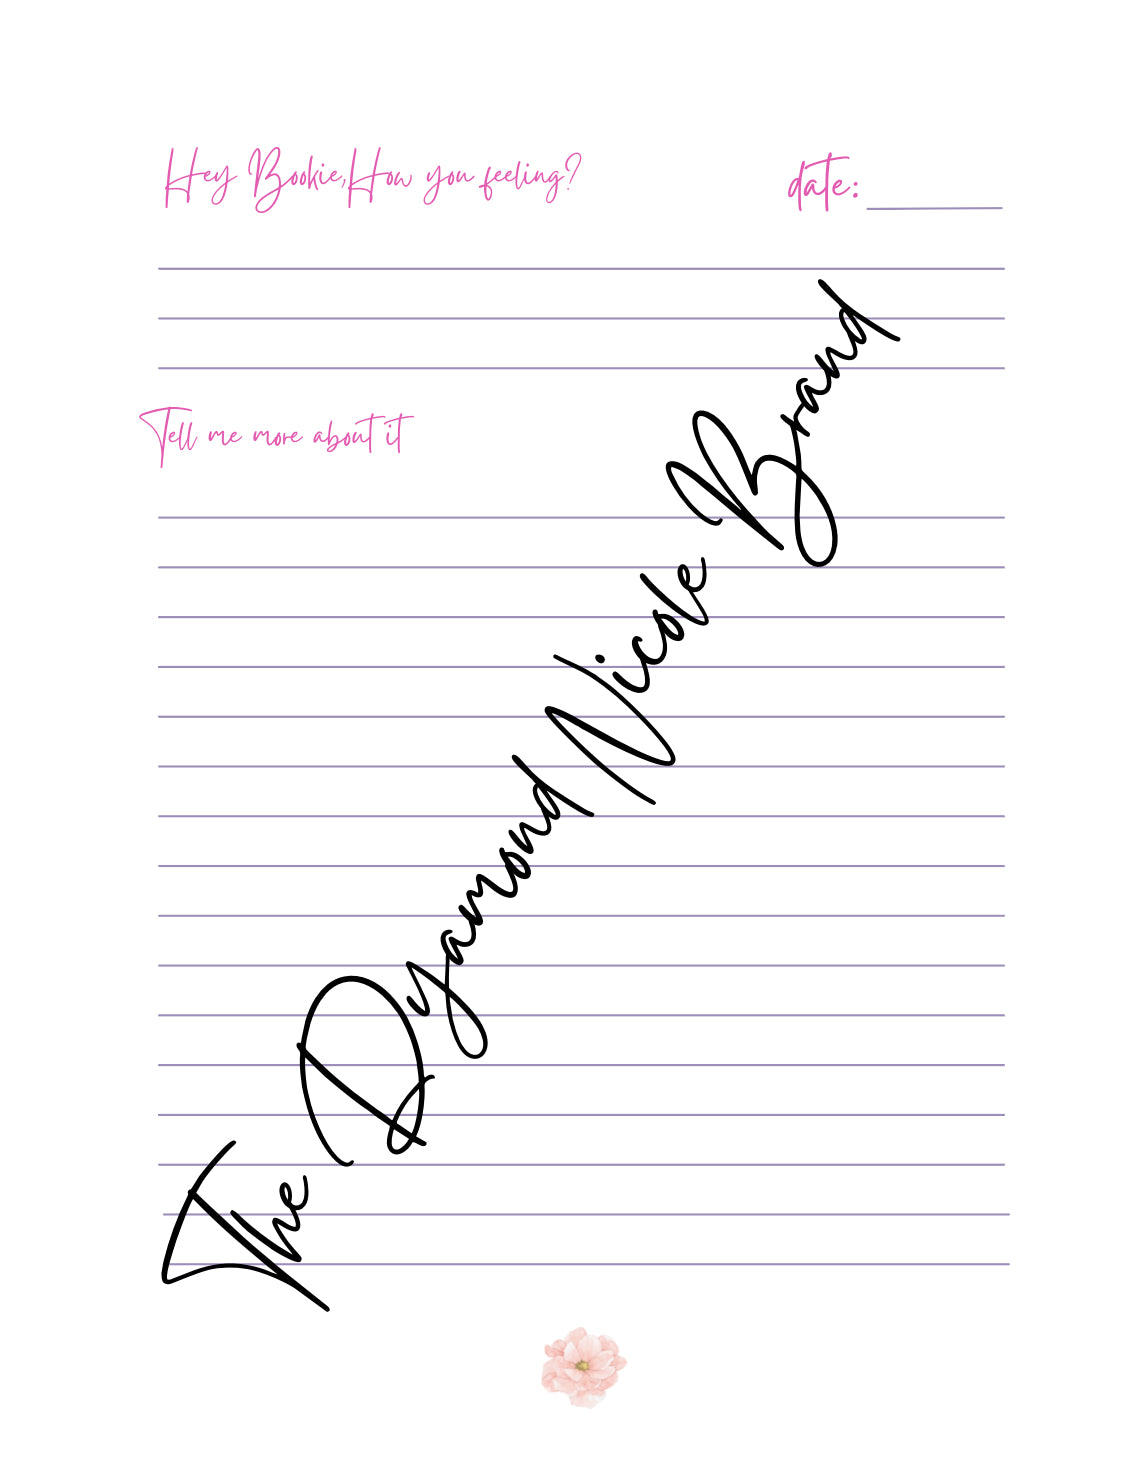 Hey Bookie,How you feeling?
date:
Tell me more about it
The Dyamond Nicole Brand